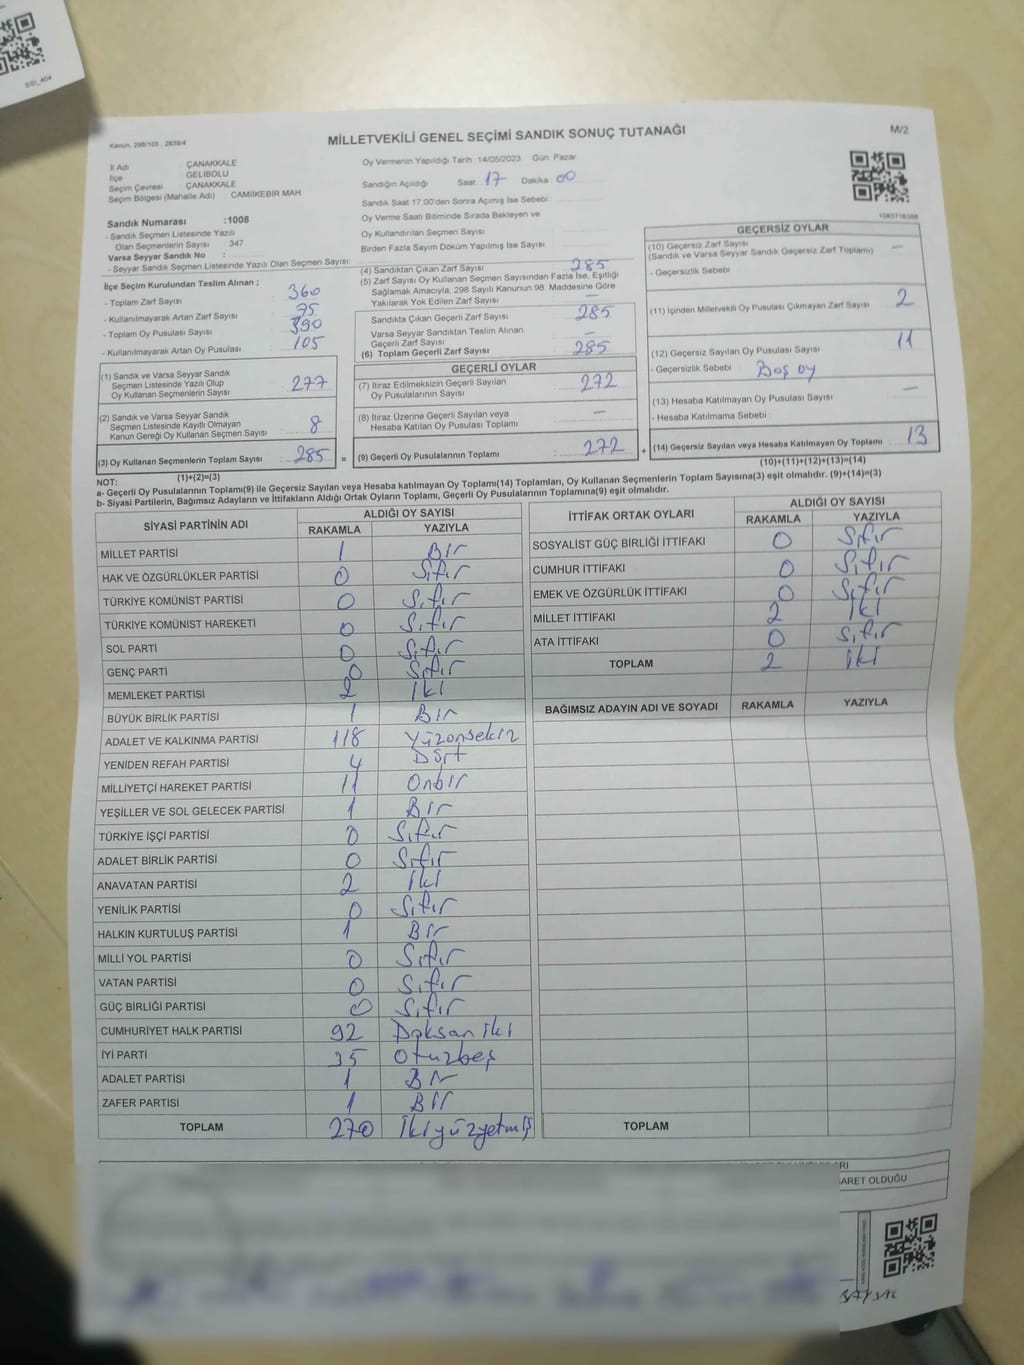 SSI_404
Kanun, 298/105 , 2839/4
MİLLETVEKİLİ GENEL SEÇİMİ SANDIK SONUÇ TUTANAĞI
M/2
İl Adı : ÇANAKKALE
İlçe : GELİBOLU
Seçim Çevresi : ÇANAKKALE
Seçim Bölgesi (Mahalle Adı) : CAMİİKEBİR MAH.
Oy Vermenin Yapıldığı Tarih : 14/05/2023 Gün: Pazar
Sandığın Açıldığı Saat: 17 Dakika 00
Sandık Saat 17.00'den Sonra Açımış İse Sebebi :
Oy Verme Saati Bitiminde Sırada Bekleyen ve
Oy Kullandırılan Seçmen Sayısı :
Birden Fazla Sayım Döküm Yapılmış İse Sayısı :
Sandık Numarası :1008
- Sandık Seçmen Listesinde Yazılı
Olan Seçmenlerin Sayısı : 347
Varsa Seyyar Sandık No :
- Seyyar Sandık Seçmen Listesinde Yazılı Olan Seçmen Sayısı:
İlçe Seçim Kurulundan Teslim Alınan ;
- Toplam Zarf Sayısı : 360
- Kullanılmayarak Artan Zarf Sayısı : 75
- Toplam Oy Pusulası Sayısı : 390
- Kullanılmayarak Artan Oy Pusulası : 105
(1) Sandık ve Varsa Seyyar Sandık
Seçmen Listesinde Yazılı Olup
Oy Kullanan Seçmenlerin Sayısı : 277
(2) Sandık ve Varsa Seyyar Sandık
Seçmen Listesinde Kayıtlı Olmayan
Kanun Gereği Oy Kullanan Seçmen Sayısı : 8
(3) Oy Kullanan Seçmenlerin Toplam Sayısı : 285 =
(1)+(2)=(3)
(4) Sandıktan Çıkan Zarf Sayısı : 285
(5) Zarf Sayısı Oy Kullanan Seçmen Sayısından Fazla İse, Eşitliği
Sağlamak Amacıyla, 298 Sayılı Kanunun 98. Maddesine Göre
Yakılarak Yok Edilen Zarf Sayısı : —
Sandıkta Çıkan Geçerli Zarf Sayısı : 285
Varsa Seyyar Sandıktan Teslim Alınan
Geçerli Zarf Sayısı : —
(6) Toplam Geçerli Zarf Sayısı : 285
GEÇERLİ OYLAR
(7) İtiraz Edilmeksizin Geçerli Sayılan
Oy Pusulalarının Sayısı : 272
(8) İtiraz Üzerine Geçerli Sayılan veya
Hesaba Katılan Oy Pusulası Toplamı : —
(9) Geçerli Oy Pusulalarının Toplamı : 272 +
GEÇERSİZ OYLAR
(10) Geçersiz Zarf Sayısı
(Sandık ve Varsa Seyyar Sandık Geçersiz Zarf Toplamı) : —
- Geçersizlik Sebebi :
(11) İçinden Milletvekili Oy Pusulası Çıkmayan Zarf Sayısı : 2
(12) Geçersiz Sayılan Oy Pusulası Sayısı : 11
- Geçersizlik Sebebi : Boş oy
(13) Hesaba Katılmayan Oy Pusulası Sayısı : —
- Hesaba Katılmama Sebebi :
(14) Geçersiz Sayılan veya Hesaba Katılmayan Oy Toplamı : 13
(10)+(11)+(12)+(13)=(14)
NOT:
a- Geçerli Oy Pusulalarının Toplamı(9) ile Geçersiz Sayılan veya Hesaba katılmayan Oy Toplamı(14) Toplamları, Oy Kullanan Seçmenlerin Toplam Sayısına(3) eşit olmalıdır. (9)+(14)=(3)
b- Siyasi Partilerin, Bağımsız Adayların ve İttifakların Aldığı Ortak Oyların Toplamı, Geçerli Oy Pusulalarının Toplamına(9) eşit olmalıdır.
SİYASİ PARTİNİN ADI ALDIĞI OY SAYISI
RAKAMLA YAZIYLA
MİLLET PARTİSİ 1 Bir
HAK VE ÖZGÜRLÜKLER PARTİSİ 0 Sıfır
TÜRKİYE KOMÜNİST PARTİSİ 0 Sıfır
TÜRKİYE KOMÜNİST HAREKETİ 0 Sıfır
SOL PARTİ 0 Sıfır
GENÇ PARTİ 0 Sıfır
MEMLEKET PARTİSİ 2 İki
BÜYÜK BİRLİK PARTİSİ 1 Bir
ADALET VE KALKINMA PARTİSİ 118 Yüzonsekiz
YENİDEN REFAH PARTİSİ 4 Dört
MİLLİYETÇİ HAREKET PARTİSİ 11 Onbir
YEŞİLLER VE SOL GELECEK PARTİSİ 1 Bir
TÜRKİYE İŞÇİ PARTİSİ 0 Sıfır
ADALET BİRLİK PARTİSİ 0 Sıfır
ANAVATAN PARTİSİ 2 İki
YENİLİK PARTİSİ 0 Sıfır
HALKIN KURTULUŞ PARTİSİ 1 Bir
MİLLİ YOL PARTİSİ 0 Sıfır
VATAN PARTİSİ 0 Sıfır
GÜÇ BİRLİĞİ PARTİSİ 0 Sıfır
CUMHURİYET HALK PARTİSİ 92 Doksan iki
İYİ PARTİ 35 Otuzbeş
ADALET PARTİSİ 1 Bir
ZAFER PARTİSİ 1 Bir
TOPLAM 270 İkiyüzyetmiş
İTTİFAK ORTAK OYLARI ALDIĞI OY SAYISI
RAKAMLA YAZIYLA
SOSYALİST GÜÇ BİRLİĞİ İTTİFAKI 0 Sıfır
CUMHUR İTTİFAKI 0 Sıfır
EMEK VE ÖZGÜRLÜK İTTİFAKI 0 Sıfır
MİLLET İTTİFAKI 2 İki
ATA İTTİFAKI 0 Sıfır
TOPLAM 2 İki
BAĞIMSIZ ADAYIN ADI VE SOYADI RAKAMLA YAZIYLA
TOPLAM
ARET OLDUĞU